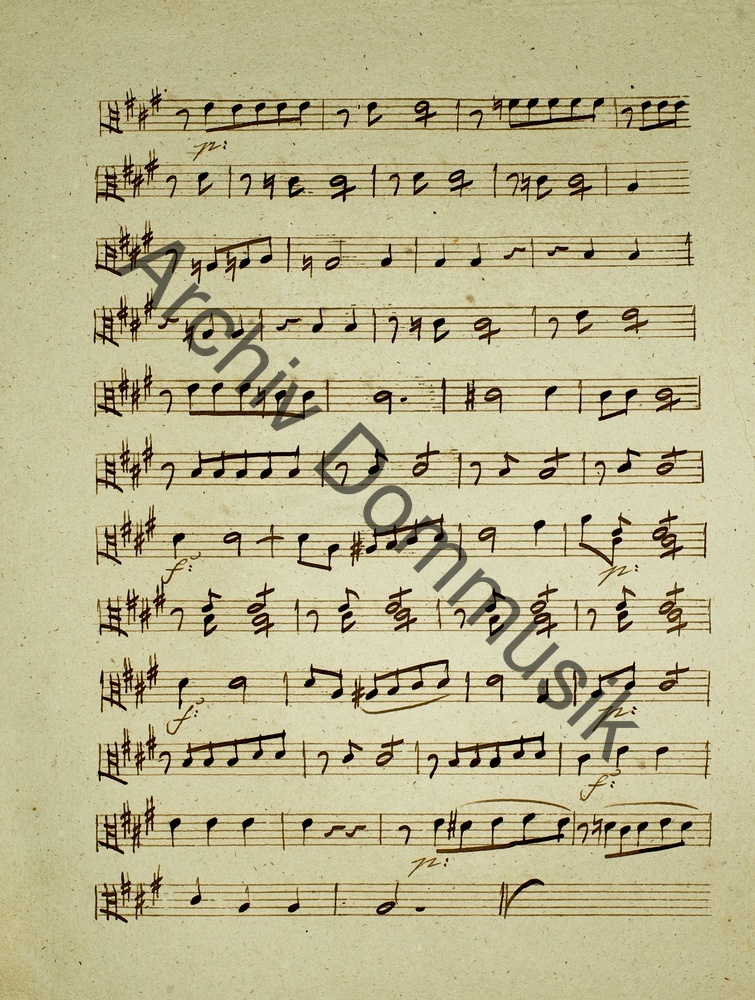 p:
Archiv Dommusik
f:
p:
f:
p:
f:
p: